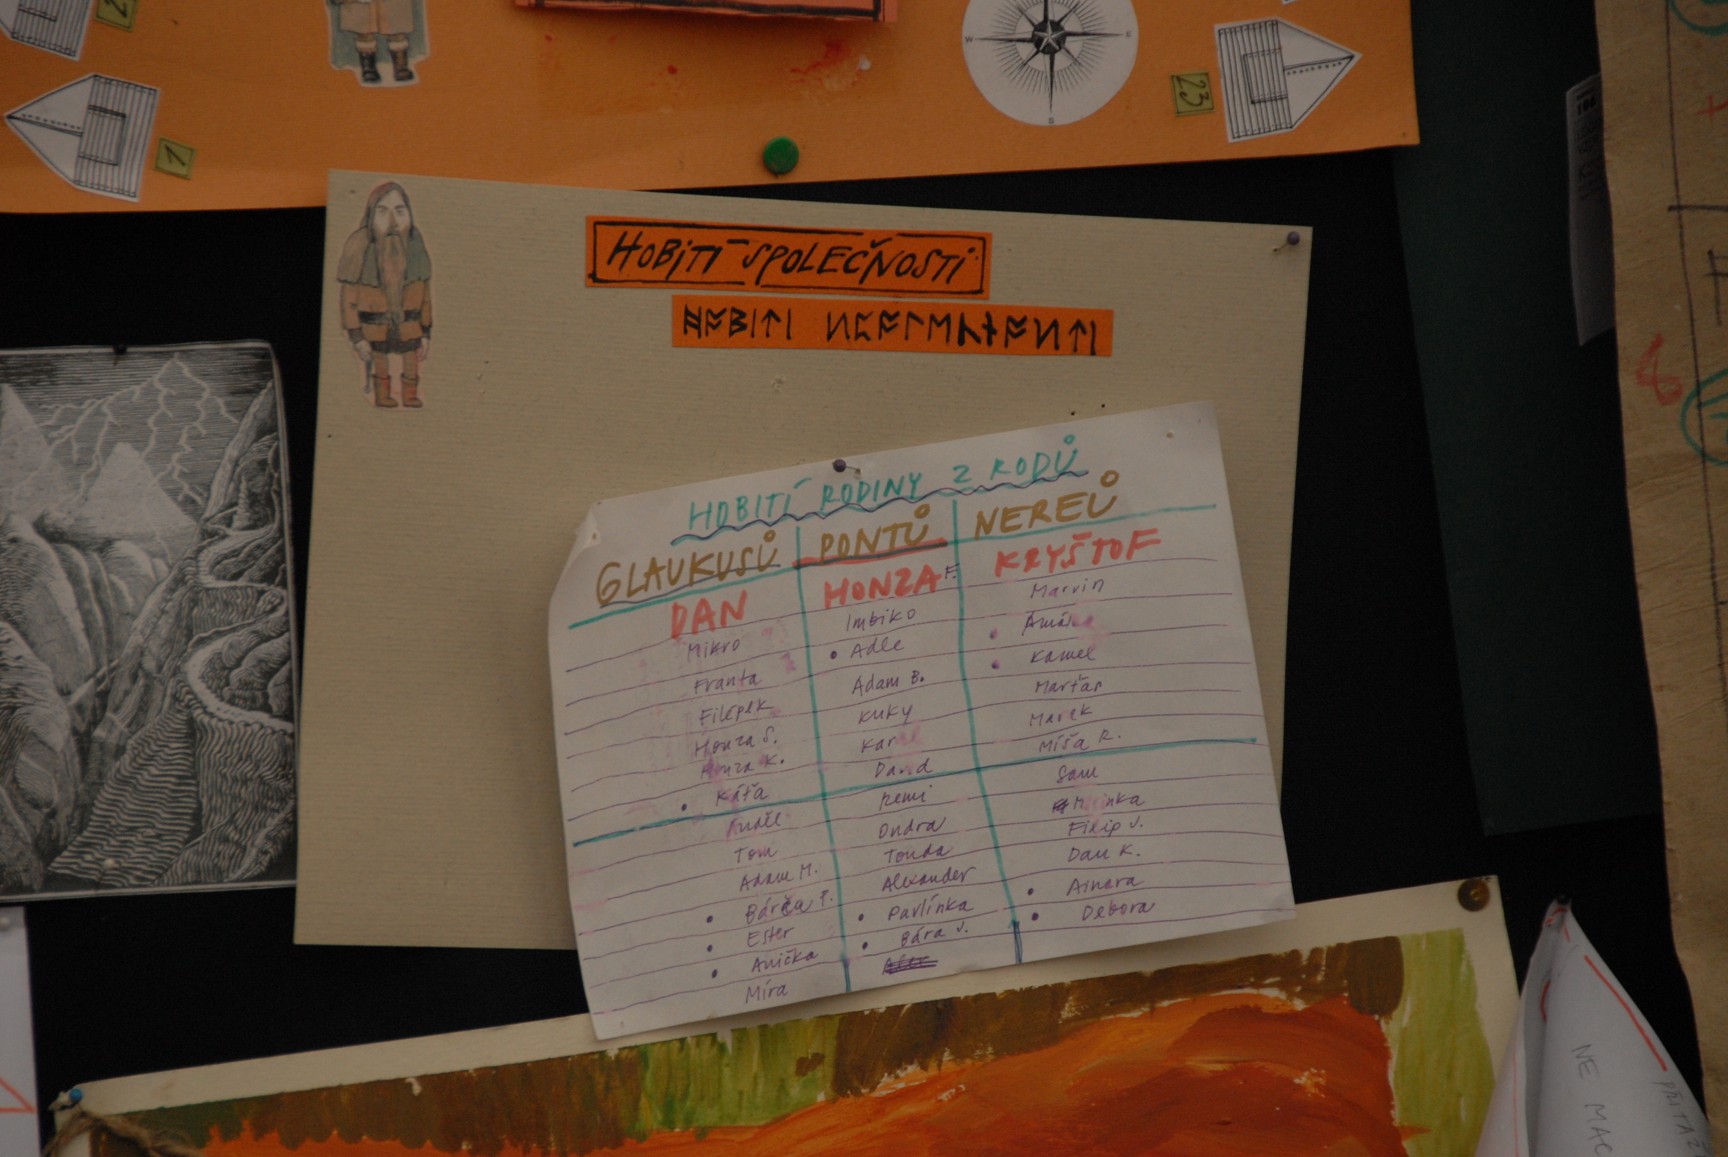 2
W
E
S
23
1
HOBITÍ SPOLEČNOSTI
ᚺᛟᛒᛁᛏᛁ
HOBITÍ RODINY Z RODŮ
GLAUKUSŮ PONTŮ NEREŮ
DAN HONZA F. KRYŠTOF
Mikro Imbiko Marvin
Franta • Adle •
Filépek Adam B. • Kamel
Honza S. Kuky Marťas
Honza K. Marek
• Káťa David Míša R.
Remi Sam
Tom Ondra
Adam M. Tonda Filip J.
• Bárča F. Alexander Dan K.
• Ester • Pavlínka • Ainara
• Anička • Bára J. • Debora
Míra
NE MAC
PŘITAŽ